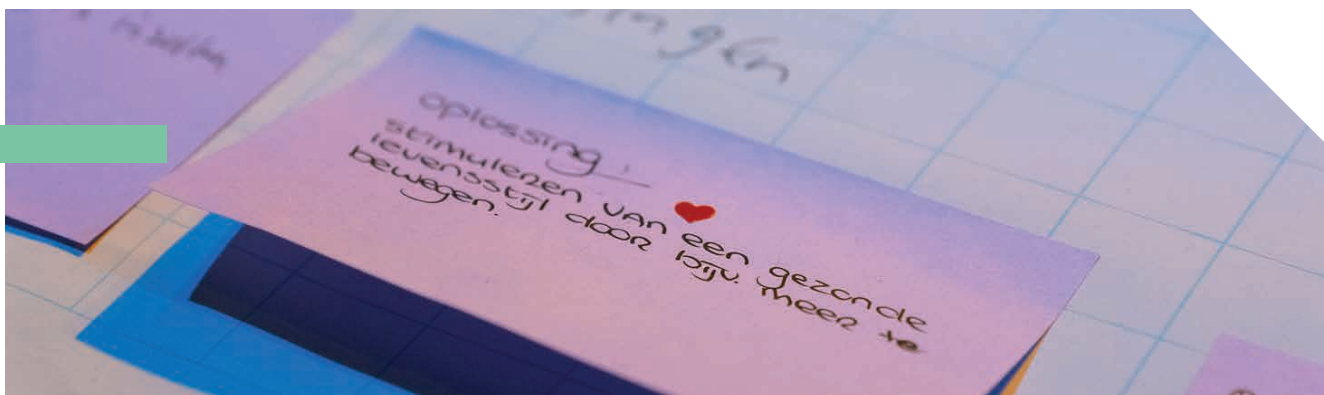 oplossing:
stimuleren van een gezonde
levensstijl door bijv. meer te
bewegen.